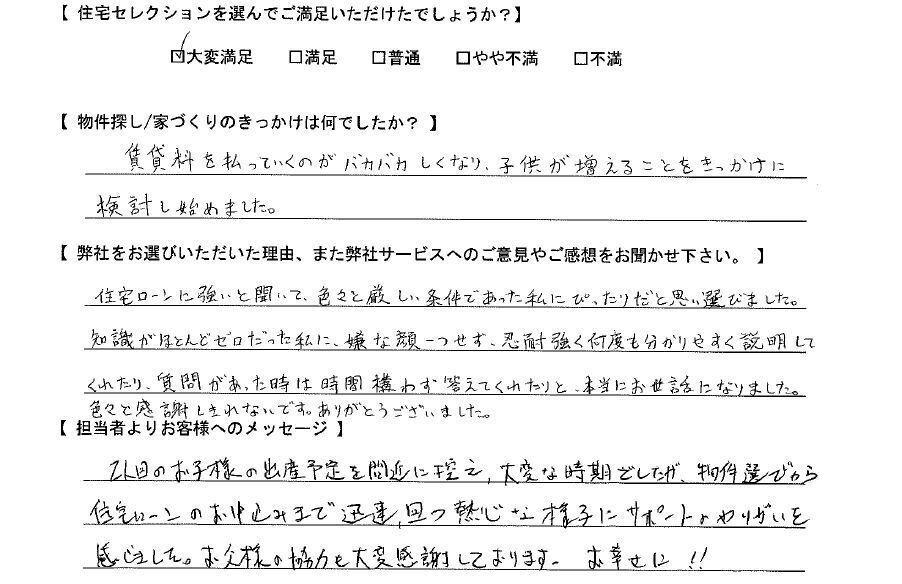 【 住宅セレクションを選んでご満足いただけたでしょうか？】
☑大変満足 □満足 □普通 □やや不満 □不満
【 物件探し/家づくりのきっかけは何でしたか？ 】
賃貸料を払っていくのがバカバカしくなり、子供が増えることをきっかけに
検討し始めました。
【 弊社をお選びいただいた理由、また弊社サービスへのご意見やご感想をお聞かせ下さい。 】
住宅ローンに強いと聞いて、色々と厳しい条件であった私にぴったりだと思い選びました。
知識がほとんどゼロだった私に、嫌な顔一つせず、忍耐強く何度も分かりやすく説明して
くれたり、質問があった時は時間構わず答えてくれたりと、本当にお世話になりました。
色々と感謝しきれないです。ありがとうございました。
【 担当者よりお客様へのメッセージ 】
2人目のお子様の出産予定を間近に控え、大変な時期でしたが、物件選びから
住宅ローンのお申込みまで迅速、且つ熱心な様子にサポートのやりがいを
感じました。お父様の協力も大変感謝しております。 お幸せに!!